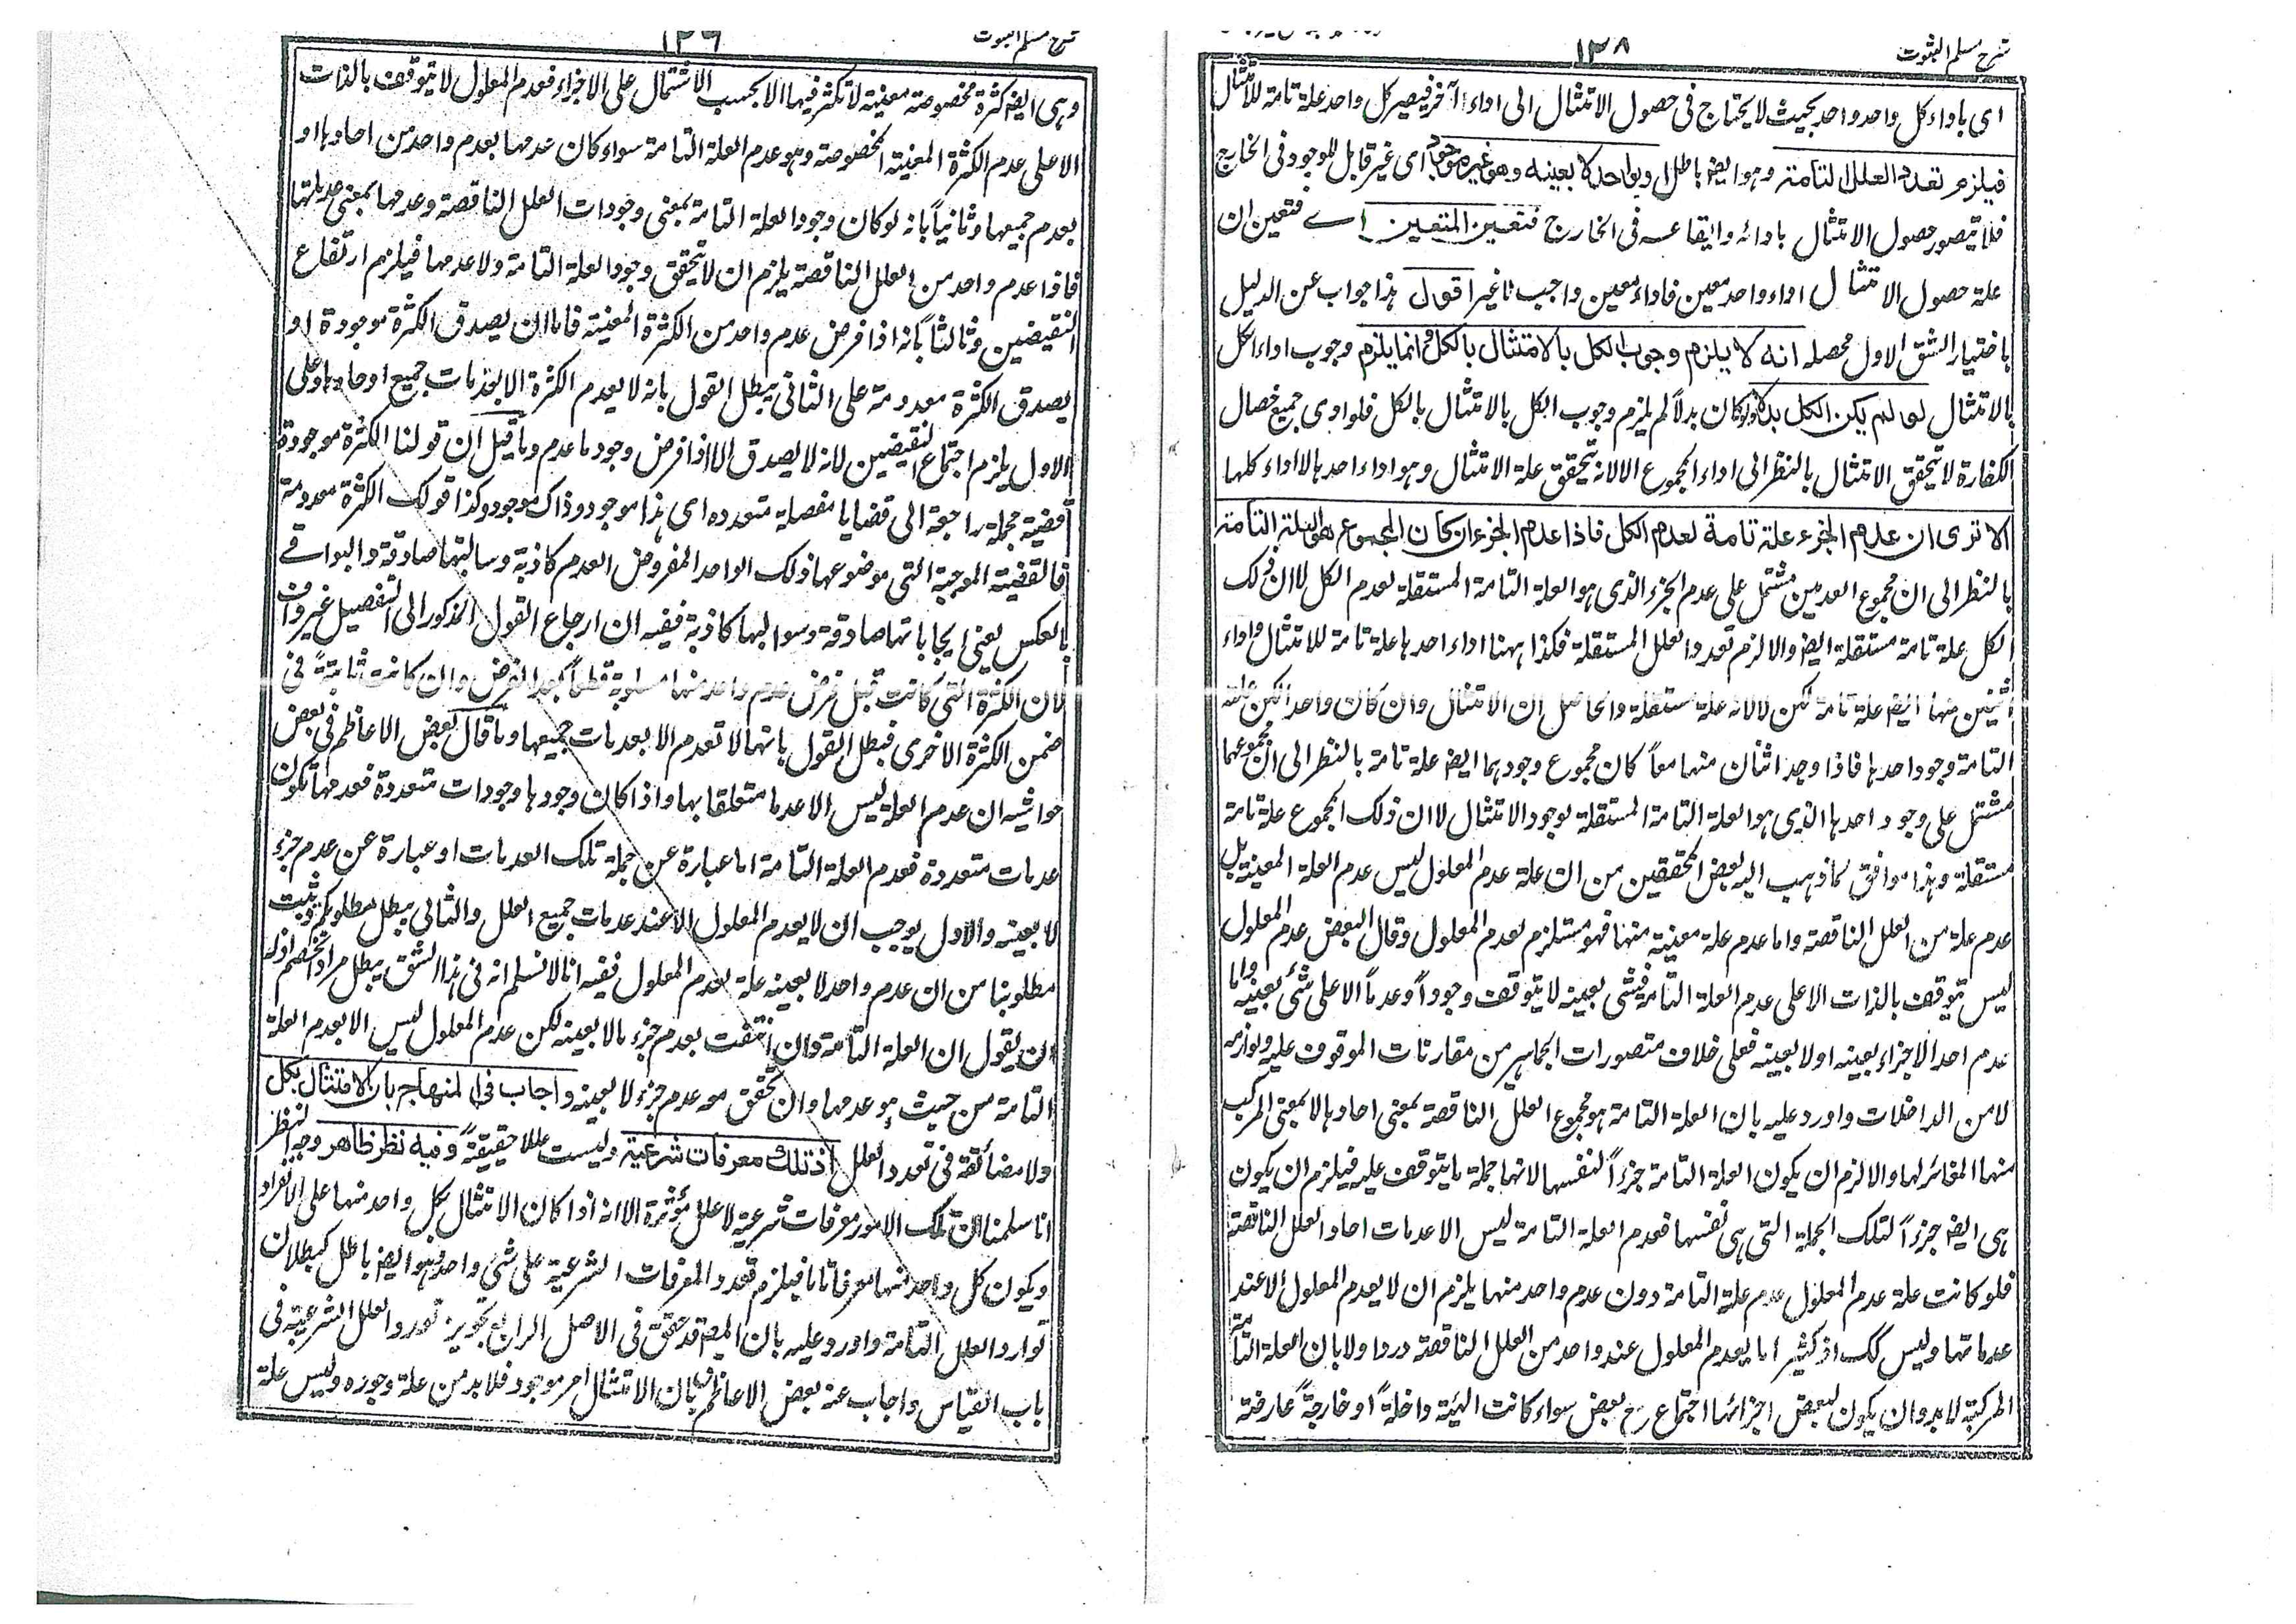 شرح مسلم الثبوت
١٣٨
اى باداء كل واحد واحد بحيث لا يحتاج فى حصول الامتثال الى اداء آخر فيصير كل واحد علة تامة للامتثال
فيلزم تعدد العلل التامة وهو ايضا باطل او بواحد لا بعينه وهو غير موجود اى غير قابل للوجود فى الخارج
فلا يتصور حصول الامتثال بادائه وايقاعه فى الخارج فتعين المتعين اے فتعين ان
علة حصول الامتثال اداء واحد معين فاداء معين واجب لا غير اقول هذا جواب عن الدليل
باختيار الشق الاول محصله انه لا يلزم وجوب الكل بالامتثال بالكل وانما يلزم وجوب اداء الكل
بالامتثال لو لم يكن الكل بدلا ولو كان بدلاً لم يلزم وجوب الكل بالامتثال بالكل فلو ادى جميع خصال
الكفارة لا يتحقق الامتثال بالنظر الى اداء المجموع الا لانه يتحقق علة الامتثال وهو اداء احدها لا اداء كلها
الا ترى ان عدم الجزء علة تامة لعدم الكل فاذا عدم الجزءان كان المجموع هو العلة التامة
بالنظر الى ان مجموع العدمين مشتمل على عدم الجزء الذى هو العلة التامة المستقلة لعدم الكل لا ان ذلك
الكل علة تامة مستقلة ايضا والا لزم تعدد العلل المستقلة فكذا ههنا اداء احدها علة تامة للامتثال واداء
اثنين منها ايضا علة تامة لكن لا لانه علة مستقلة والحاصل ان الامتثال وان كان واحدا لكن علته
التامة وجود احدها فاذا وجد اثنان منها معاً كان مجموع وجودهما ايضا علة تامة بالنظر الى ان مجموعهما
مشتمل على وجود احدها الذى هو العلة التامة المستقلة لوجود الامتثال لا ان ذلك المجموع علة تامة
مستقلة وهذا موافق لما ذهب اليه بعض المحققين من ان علة عدم المعلول ليس عدم العلة المعينة بل
عدم علة من العلل الناقصة واما عدم علة معينة منها فهو مستلزم لعدم المعلول وقال البعض عدم المعلول
ليس يتوقف بالذات الا على عدم العلة التامة فشئ بعينه لا يتوقف وجوداً وعدماً الا على شئ بعينه واما
عدم احد الاجزاء بعينه او لا بعينه فعلى خلاف متصورات الجماهير من مقارنات الموقوف عليه ولوازمه
لا من الداخلات واورد عليه بان العلة التامة هو مجموع العلل الناقصة بمعنى احادها لا بمعنى المركب
منها المغائر لها والا لزم ان يكون العلة التامة جزءاً لنفسها لانها جملة ما يتوقف عليه فيلزم ان يكون
هى ايضا جزءاً لتلك الجملة التى هى نفسها فعدم العلة التامة ليس الا عدمات احاد العلل الناقصة
فلو كانت علة عدم المعلول عدم علة التامة دون عدم واحد منها يلزم ان لا يعدم المعلول الا عند
عدماتها وليس كك اذ كثيرا ما يعدم المعلول عند واحد من العلل الناقصة ورد اولا بان العلة التامة
المركبة لا بد وان يكون لبعض اجزائها اجتماع مع بعض سواء كانت الهيئة داخلةً او خارجةً عارضة
شرح مسلم الثبوت
وهى ايضا كثرة مخصوصة معينة لا تكثر فيها الا بحسب الاشتمال على الاجزاء فعدم المعلول لا يتوقف بالذات
الا على عدم الكثرة المعينة المخصوصة وهو عدم العلة التامة سواء كان عدمها بعدم واحد من احادها او
بعدم جميعها وثانياً بانه لو كان وجود العلة التامة بمعنى وجودات العلل الناقصة وعدمها بمعنى عدماتها
فاذا عدم واحد من العلل الناقصة يلزم ان لا يتحقق وجود العلة التامة ولا عدمها فيلزم ارتفاع
النقيضين وثالثاً بانه اذا فرض عدم واحد من الكثرة المعينة فاما ان يصدق الكثرة موجودة او
يصدق الكثرة معدومة على الثانى يبطل القول بانه لا يعدم الكثرة الا بعدمات جميع احادها وعلى
الاول يلزم اجتماع النقيضين لانه لا يصدق الا اذا فرض وجود ما عدم وما قيل ان قولنا الكثرة موجودة
قضية مجملة راجعة الى قضايا مفصلة متعدده اى هذا موجود وذاك موجود وكذا قولك الكثرة معدومة
فالقضية الموجبة التى موضوعها ذلك الواحد المفروض العدم كاذبة وسالبتها صادقة والبواقے
بالعكس يعنى ايجاباتها صادقة وسوالبها كاذبة ففيه ان ارجاع القول المذكور الى التفصيل غير واف
لان الكثرة التى كانت قبل فرض عدم واحد منها مسلوبة قطعاً بعد الفرض وان كانت ثابتةً فى
ضمن الكثرة الاخرى فبطل القول بانها لا تعدم الا بعدمات جميعها وما قال بعض الاعاظم فى بعض
حواشيه ان عدم العلة ليس الا عدما متعلقا بها واذا كان وجودها وجودات متعددة فعدمها يكون
عدمات متعددة فعدم العلة التامة اما عبارة عن جملة تلك العدمات او عبارة عن عدم جزء
لا بعينه والاول يوجب ان لا يعدم المعلول الا عند عدمات جميع العلل والثانى يبطل مطلوبكم ويثبت
مطلوبنا من ان عدم واحد لا بعينه علة لعدم المعلول ففيه انا لا نسلم انه فى هذا الشق يبطل مراد الخصم اذ له
ان يقول ان العلة التامة وان انتفت بعدم جزء ما لا بعينه لكن عدم المعلول ليس الا بعدم العلة
التامة من حيث هو عدمها وان تحقق معه عدم جزء لا بعينه واجاب فى المنهاج بان الامتثال بكل
ولا مضائقة فى تعدد العلل اذ تلك معرفات شرعية وليست عللا حقيقيةً وفيه نظر ظاهر وجه النظر
انا سلمنا ان تلك الامور معرفات شرعية لا علل مؤثرة الا انه اذا كان الامتثال بكل واحد منها على الانفراد
ويكون كل واحد منها معرفا تاما فيلزم تعدد المعرفات الشرعية على شئ واحد وهو ايضا باطل كبطلان
توارد العلل التامة واورد عليه بان المصـ قد حقق فى الاصل الرابع تجويز توارد العلل الشرعية فى
باب القياس واجاب عنه بعض الاعاظم بان الامتثال امر موجود فلا بد من علة وجوده وليس علة